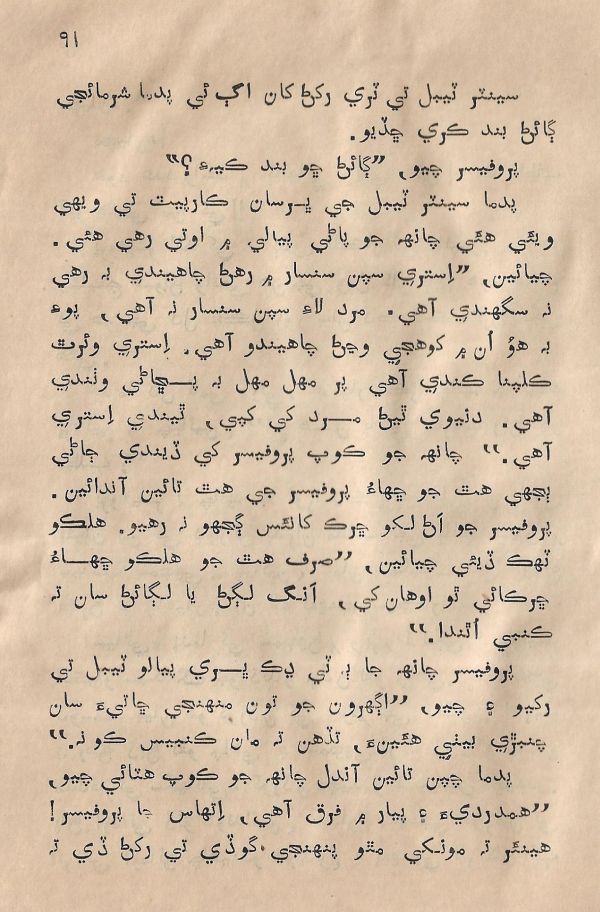 ۹۱
سينٽر ٽيبل تي ٽري رکڻ کان اڳ ئي پدما شرمائجي
ڳائڻ بند ڪري ڇڏيو.
پروفيسر چيو, ”ڳائڻ ڇو بند ڪيءِ ؟”
پدما سينٽر ٽيبل جي ڀرسان ڪارپيٽ تي ويهي
ويئي هئي چانهہ جو پاڻي پيالي ۾ اوتي رهي هئي.
چيائين, ”اِستري سپن سنسار ۾ رهڻ چاهيندي بہ رهي
نہ سگهندي آهي. مرد لاءِ سپن سنسار نہ آهي, پوءِ
بہ هوُ اُن ۾ کوهجي وڃڻ چاهيندو آهي. اِستري وئرٿ
ڪلپنا ڪندي آهي پر مهل مهل بہ پڇاڻي وٺندي
آهي. دنيوي ٿيڻ مرد کي کپي, ٿيندي اِستري
آهي.“ چانهہ جو ڪوپ پروفيسر کي ڏيندي ڄاڻي
ٻجهي هٿ جو ڇهاءُ پروفيسر جي هٿ تائين آندائين.
پروفيسر جو اڻ لکو ڇرڪ کانئس ڳجهو نہ رهيو. هلڪو
ٽهڪ ڏيئي چيائين, ”صرف هٿ جو هلڪو ڇهاءُ
ڇرڪائي ٿو اوهان کي, اَنگ لڳڻ يا لڳائڻ سان تہ
ڪنبي اُٿندا.“
پروفيسر چانهہ جا ٻہ ٽي ڍڪ ڀري پيالو ٽيبل تي
رکيو ۽ چيو, ”اڳهرون جو تون منهنجي ڇاتيءَ سان
چنبڙي بيٺي هئينءَ, تڏهن تہ مان ڪنبيس ڪو نہ.“
پدما چپن تائين آندل چانهہ جو ڪوپ هٽائي چيو,
”همدرديءَ ۽ پيار ۾ فرق آهي, اِتهاس جا پروفيسر!
هينئر تہ مونکي مٿو پنهنجي گوڏي تي رکڻ ڏي تہ